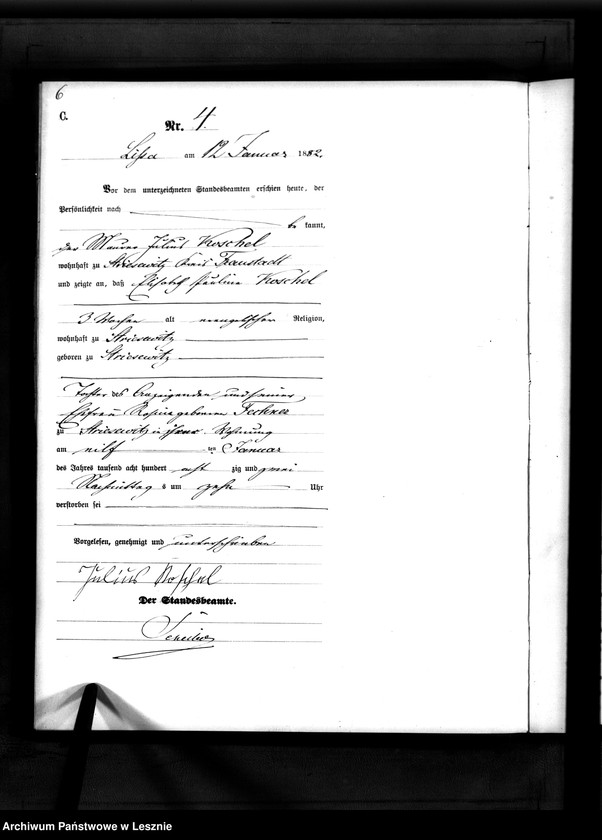 6
C.
Nr. 4.
Lissa am 12 Januar 1882.
Vor dem unterzeichneten Standesbeamten erschien heute, der
Persönlichkeit nach
be kannt,
der Maurer Julius Koschel
wohnhaft zu Striesewitz Kreis Fraustadt
und zeigte an, daß Elisabeth Pauline Koschel
3 Wochen alt evangelischer Religion,
wohnhaft zu Striesewitz
geboren zu Striesewitz
Tochter des Anzeigenden und seiner
Ehefrau Rosina geborenen Fechner
zu Striesewitz in seiner Wohnung
am eilf ten Januar
des Jahres tausend acht hundert acht zig und zwei
Nachmittag s um zehn Uhr
verstorben sei
Vorgelesen, genehmigt und unterschrieben
Julius Koschel
Der Standesbeamte.
Archiwum Państwowe w Lesznie